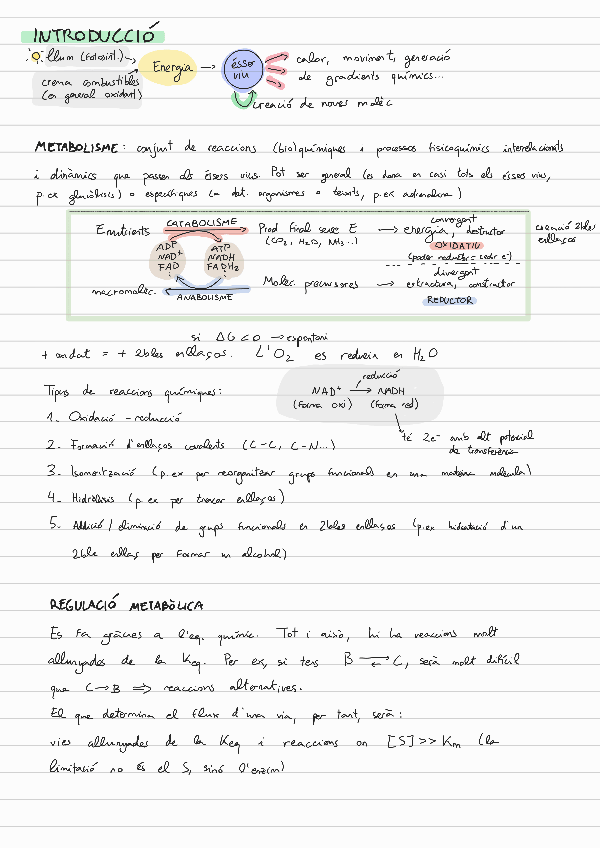 INTRODUCCIÓ
llum (fotosínt.)
crema combustibles
(en general oxidant)
Energia
ésser
viu
calor, moviment, generació
de gradients químics...
creació de noves molèc
METABOLISME: conjunt de reaccions (bio)químiques i processos fisicoquímics interrelacionats
i dinàmics que passen als éssers vius. Pot ser general (es dona en casi tots els éssers vius,
p.ex glucòlisis) o específiques (= det. organismes o teixits, p.ex adrenalina)
Enutrients
CATABOLISME
Prod final sense E
(CO2, H2O, NH3...)
convergent
energia, destructor
OXIDATIU
(poder reductor = cedir e-)
creació 2bles
enllaços
ADP
NAD+
FAD
ATP
NADH
FADH2
macromolèc.
ANABOLISME
Molèc. precursores
divergent
estructura, constructor
REDUCTOR
si ΔG<0 → espontani
+ oxidat = + 2bles enllaços. L'O2 es redueix en H2O
Tipus de reaccions químiques:
reducció
NAD+ → NADH
(forma oxi) (forma red)
té 2e- amb alt potencial
de transferència
1. Oxidació - reducció
2. Formació d'enllaços covalents (C-C, C-N...)
3. Isomerització (p.ex per reorganitzar grups funcionals en una mateixa molècula)
4. Hidròlisis (p.ex per trencar enllaços)
5. Addició / eliminació de grups funcionals en 2bles enllaços (p.ex hidratació d'un
2ble enllaç per formar un alcohol)
REGULACIÓ METABÒLICA
Es fa gràcies a l'eq. químic. Tot i això, hi ha reaccions molt
allunyades de la Keq. Per ex, si tens B ⇄ C, serà molt difícil
que C→B ⇒ reaccions alternatives.
El que determina el flux d'una via, per tant, serà:
vies allunyades de la Keq i reaccions on [S]>>Km (la
limitació no és el S, sinó l'enzim)